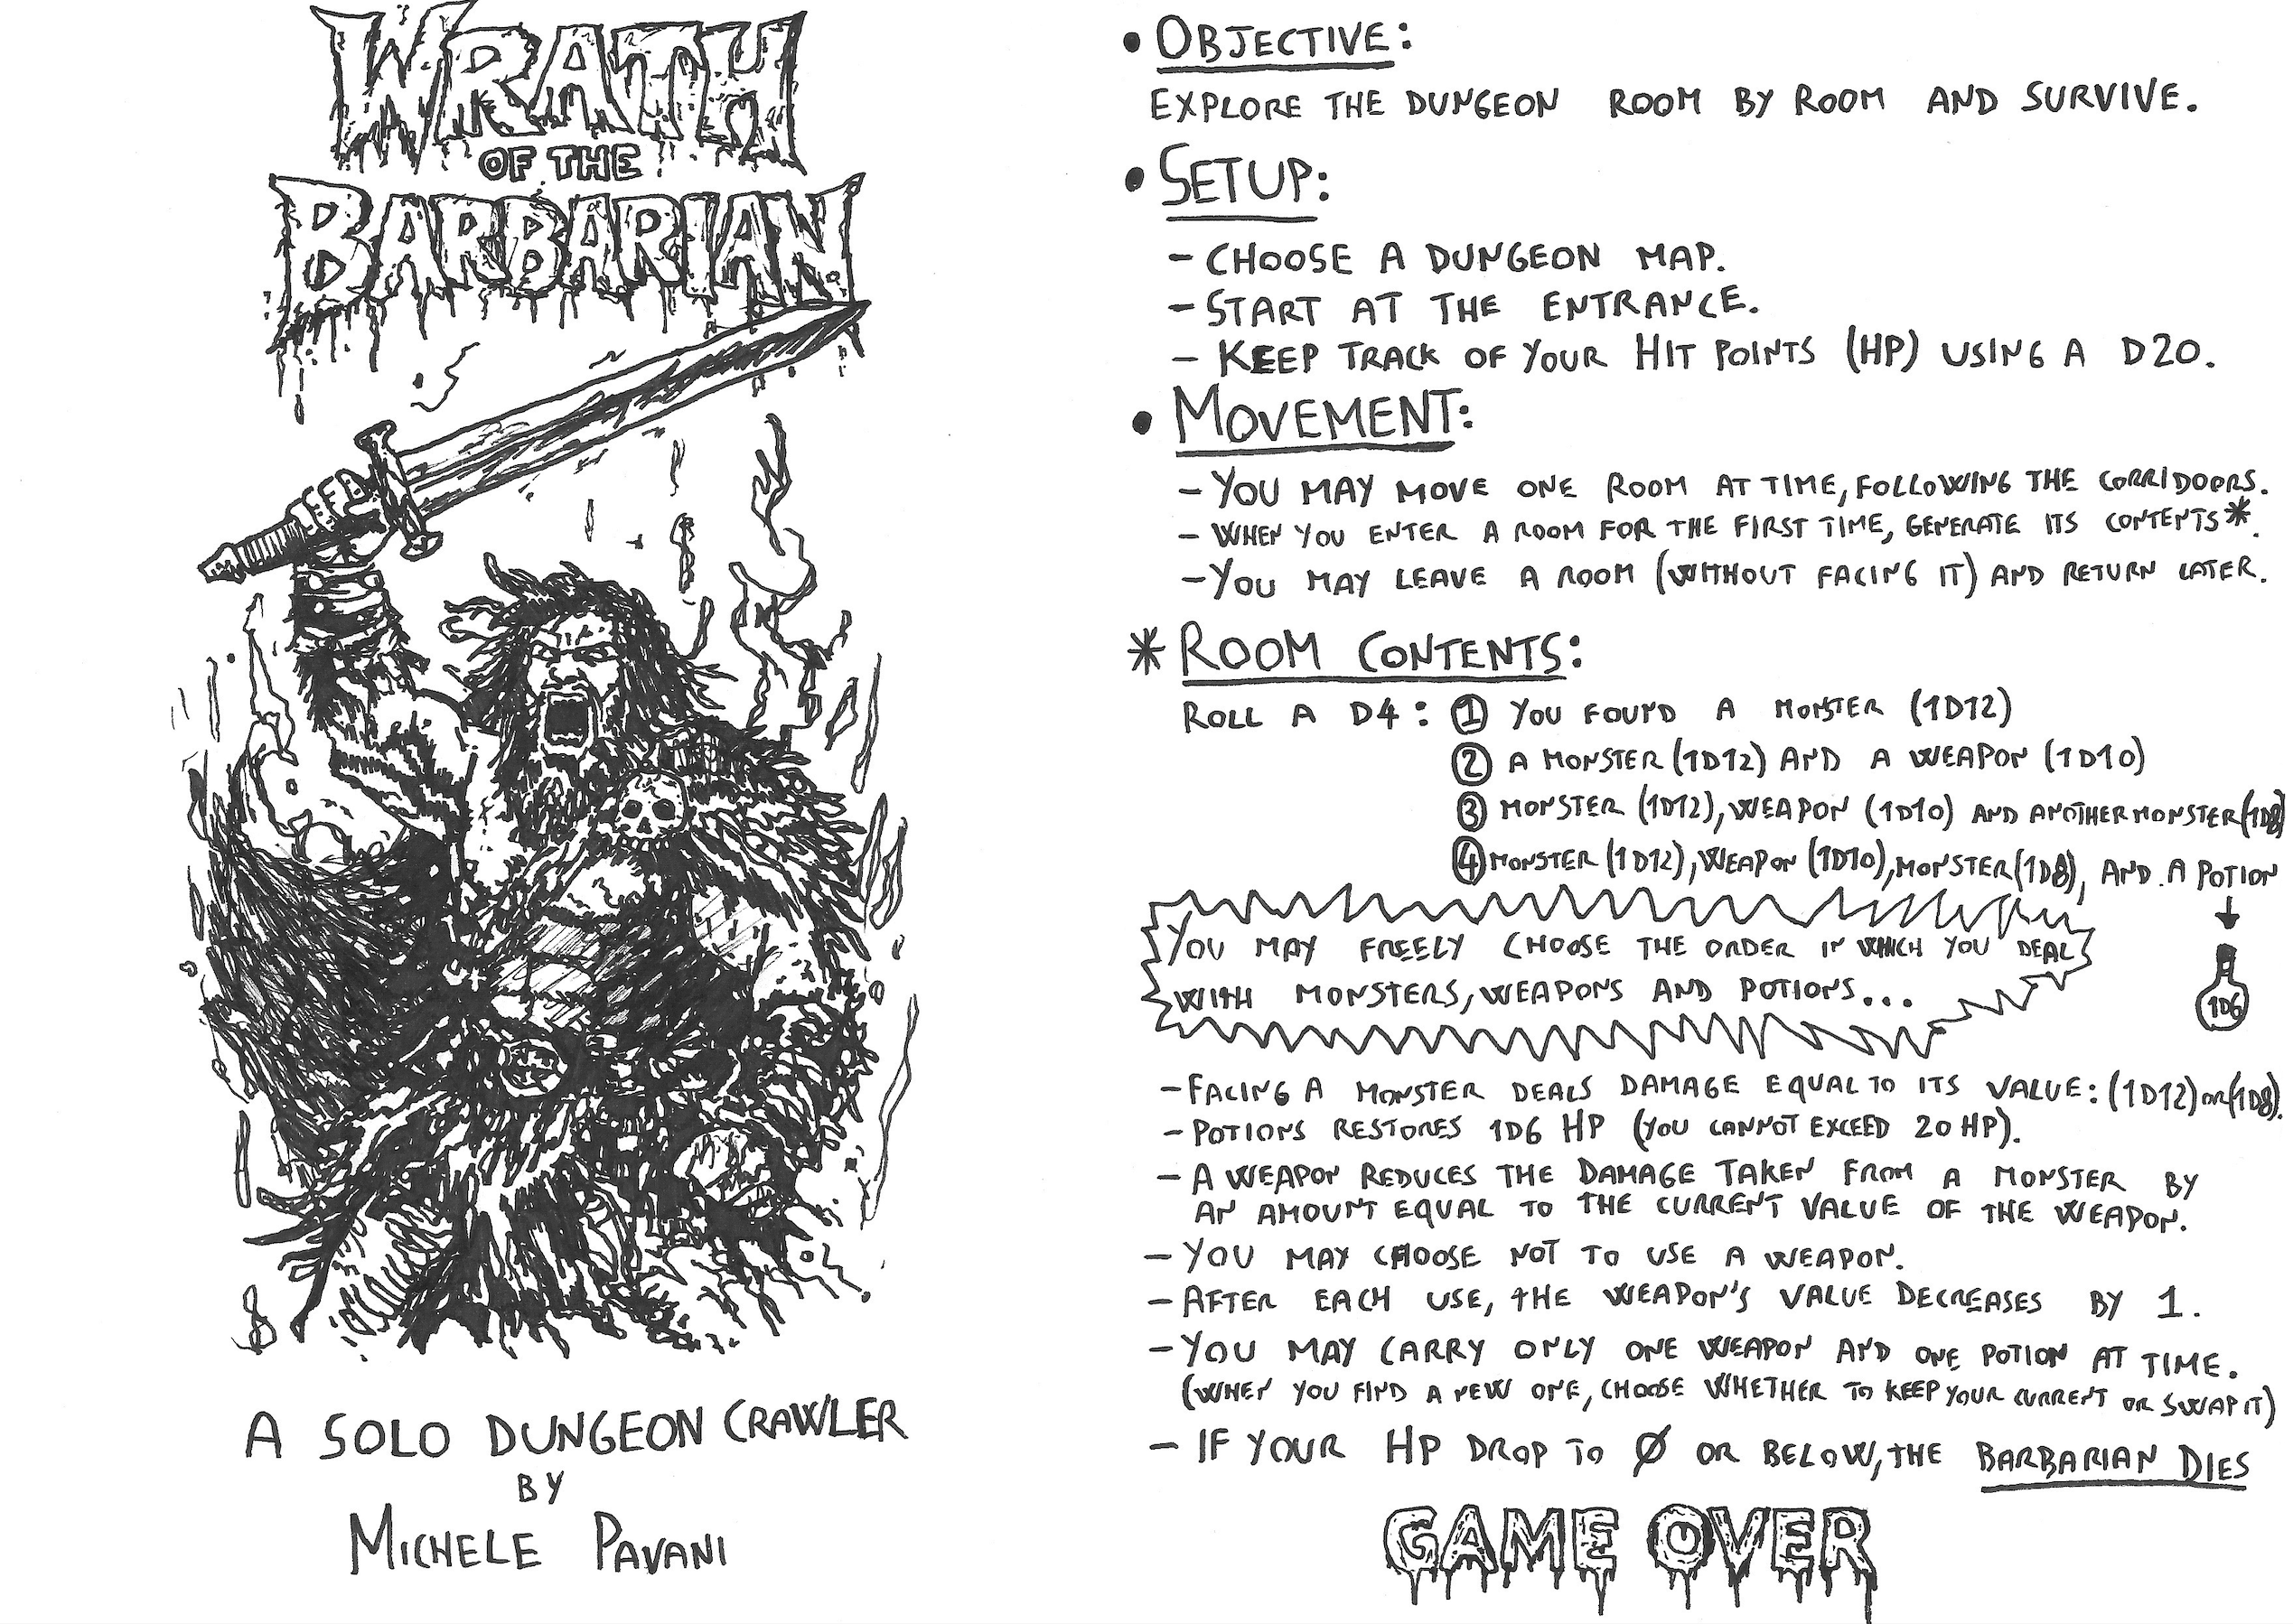 WRATH
OF THE
BARBARIAN
A SOLO DUNGEON CRAWLER
BY
MICHELE PAVANI
• OBJECTIVE:
EXPLORE THE DUNGEON ROOM BY ROOM AND SURVIVE.
• SETUP:
- CHOOSE A DUNGEON MAP.
- START AT THE ENTRANCE.
- KEEP TRACK OF YOUR HIT POINTS (HP) USING A D20.
• MOVEMENT:
- YOU MAY MOVE ONE ROOM AT TIME, FOLLOWING THE CORRIDOORS.
- WHEN YOU ENTER A ROOM FOR THE FIRST TIME, GENERATE ITS CONTENTS*.
- YOU MAY LEAVE A ROOM (WITHOUT FACING IT) AND RETURN LATER.
* ROOM CONTENTS:
ROLL A D4: ① YOU FOUND A MONSTER (1D12)
② A MONSTER (1D12) AND A WEAPON (1D10)
③ MONSTER (1D12), WEAPON (1D10) AND ANOTHER MONSTER (1D8)
④ MONSTER (1D12), WEAPON (1D10), MONSTER (1D8), AND A POTION
YOU MAY FREELY CHOOSE THE ORDER IN WHICH YOU DEAL
WITH MONSTERS, WEAPONS AND POTIONS...
1D6
- FACING A MONSTER DEALS DAMAGE EQUAL TO ITS VALUE: (1D12) OR (1D8).
- POTIONS RESTORES 1D6 HP (YOU CANNOT EXCEED 20 HP).
- A WEAPON REDUCES THE DAMAGE TAKEN FROM A MONSTER BY
AN AMOUNT EQUAL TO THE CURRENT VALUE OF THE WEAPON.
- YOU MAY CHOOSE NOT TO USE A WEAPON.
- AFTER EACH USE, THE WEAPON'S VALUE DECREASES BY 1.
- YOU MAY CARRY ONLY ONE WEAPON AND ONE POTION AT TIME.
(WHEN YOU FIND A NEW ONE, CHOOSE WHETHER TO KEEP YOUR CURRENT OR SWAP IT)
- IF YOUR HP DROP TO 0 OR BELOW, THE BARBARIAN DIES
GAME OVER